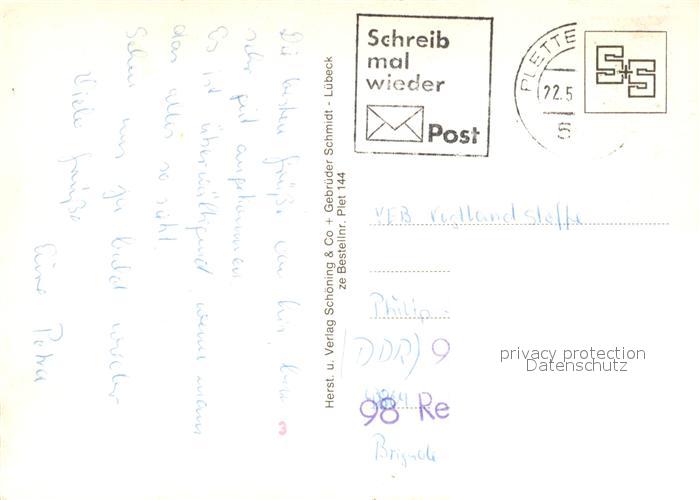 Die besten Grüße von hier, bin
sehr gut angekommen.
Es ist überwältigend wenn man
das alles so sieht.
Sehen uns ja bald wieder
Viele Grüße
Eure Petra
Herst. u. Verlag Schöning & Co + Gebrüder Schmidt - Lübeck
ze Bestellnr. Plet 144
Schreib
mal
wieder
Post
PLETTE
22.5
S+S
VEB Vogtlandstoffe
Philip
(DDR) 9
98 Re
Brigade
3
privacy protection
Datenschutz